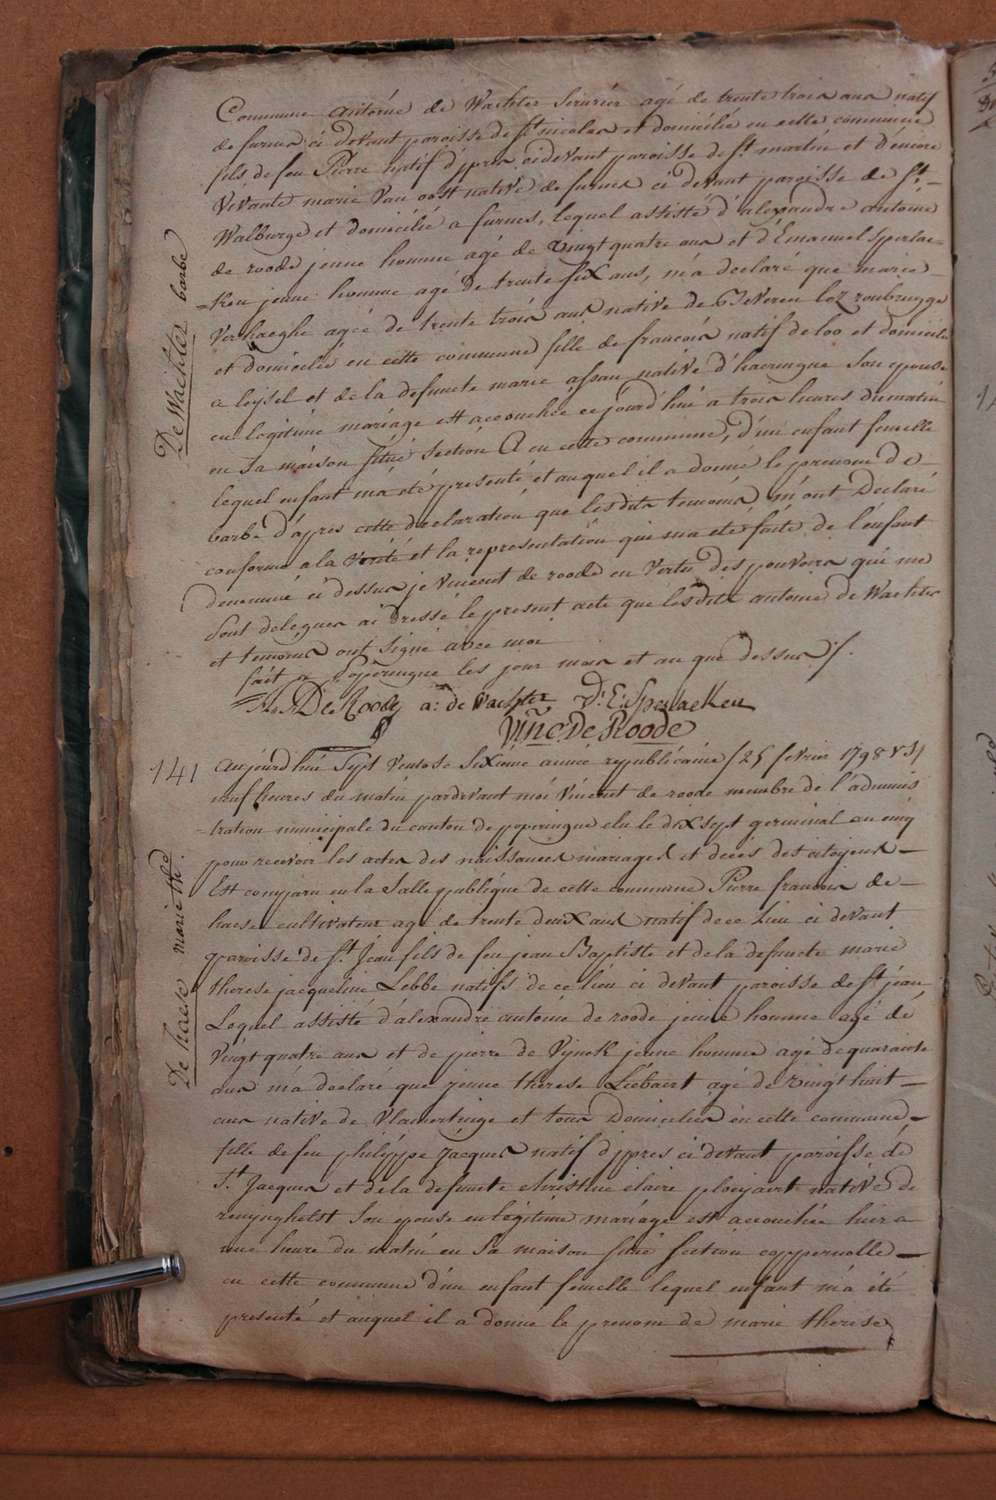 Commune antoine de Wachter serurier agé de trente trois ans natif
de furnes ci devant paroisse de St nicolas et domicilié en cette commune
fils de feu Pierre natif d'ipres cidevant paroisse de St martin et d'encore
Vivante marie Van oost native de furnes ci devant paroisse de St
Walburge et domiciliée a furnes, lequel assisté d'alexandre antoine
de roode jeune homme agé de vingt quatre ans et d'Emanuel Sperlae-
-ken jeune homme agé de trente six ans, m'a declaré que marie
Verhaeghe agée de trente trois ans native de Beveren lez rousbrugge
et domiciliée en cette commune fille de francois natif de loo et domicilié
a leysel et de la defuncte marie assau native d'haeringue son epouse
en legitime mariage est accouchée ce jourd'hui a trois heures du matin
en sa maison situé section A en cette commune, d'un enfant femelle
lequel enfant m'a été presenté et auquel il a donné le prenom de
barbe d'apres cette declaration que lesdits temoins m'ont Declaré
conforme a la Verité et la representation qui m'a eté faite de l'enfant
denommé ci dessus je vincent de roode en Vertu des pouvoirs qui me
sont delegués ai dressé le present acte que lesdits antoine De Wachter
et temoins ont signé avec moi
fait a Poperingue les jour mois et an que dessus ./.
A: De Roode a: de Wachter D: E: Sperlaeken
Vinc. De Roode
De Wachter barbe
141 aujourd'hui Sept Ventose Sixieme année republicaine /25 fevrier 1798 v.s/
neuf heures du matin pardevant moi Vincent de roode membre de l'adminis
-tration municipale du canton de poperingue elu le dix sept germinal an cinq
pour recevoir les actes des naissances mariages et decès des citoyens
Est comparu en la Salle publique de cette commune Pierre francois de
haese cultivateur agé de trente deux ans natif de ce Lieu ci devant
paroisse de St Jean fils de feu jean Baptiste et de la defuncte marie
therese jacqueline Lebbe natifs de ce lieu ci devant paroisse de St jean
Lequel assisté d'alexandre antoine de roode jeune homme agé de
Vingt quatre ans et de pierre de Vynck jeune homme agé de quarante
ans m'a declaré que jeune therese Liebaert agé de vingt huit
ans native de Vlamertinge et tous Domiciliés en cette commune,
fille de feu philippe jacques natif d'ipres ci devant paroisse de
St Jacques et de la defuncte christine claire ployaert native de
renynghelst son epouse en legitime mariage est accouchée hier a
une heure du matin en sa maison situé section coppernolle
en cette commune d'un enfant femelle lequel enfant m'a été
presenté et auquel il a donné le prenom de marie therese
De haese marie the